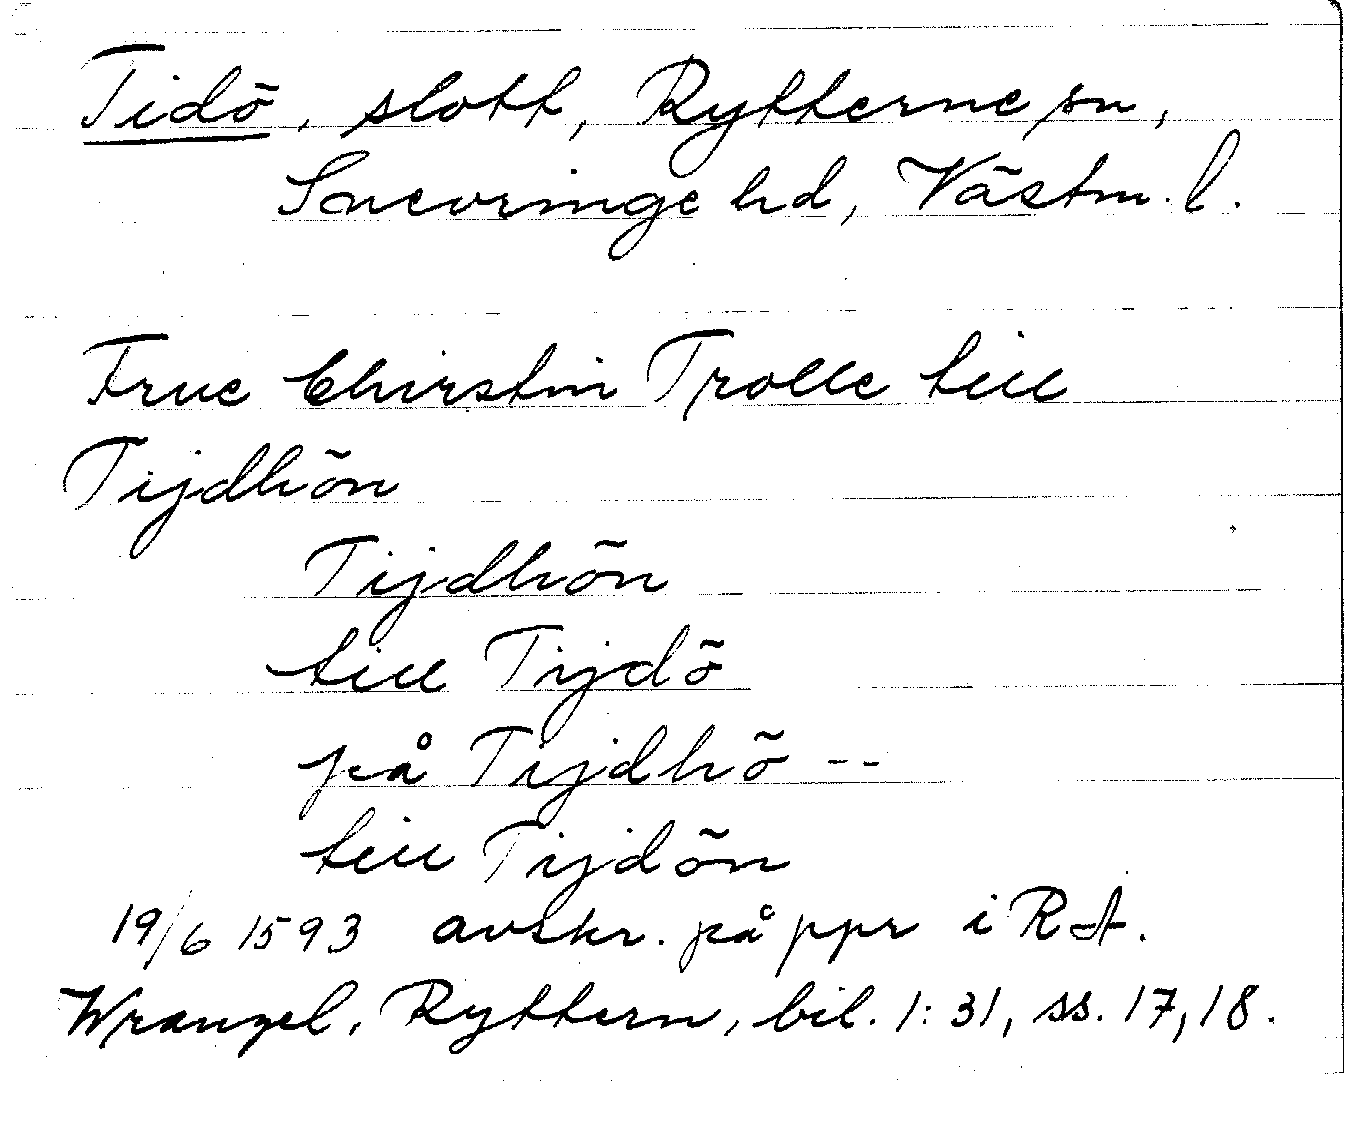 Tidö, slott, Rytterne sn,
Snevringe hd, Västm. l.
Frue Chirstin Trolle till
Tijdhön
Tijdhön
till Tijdö
på Tijdhö --
till Tijdön
19/6 1593 avskr. på ppr i RA.
Wrangel, Ryttern, bil. 1:31, ss. 17, 18.